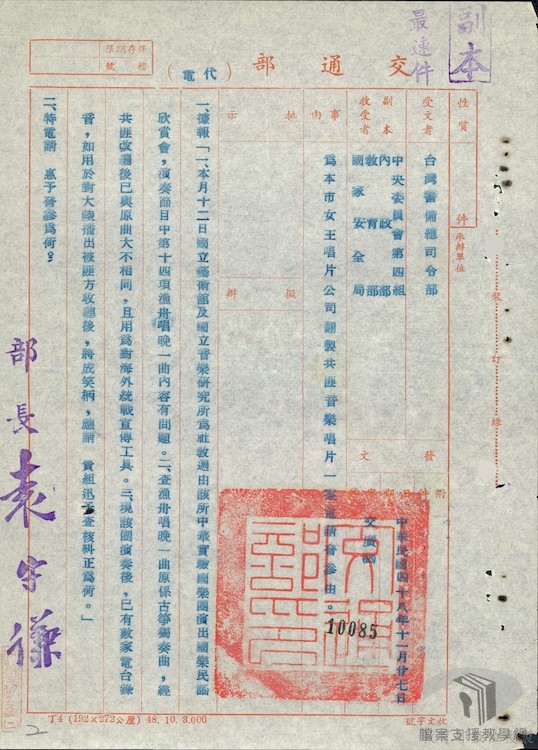 副本
最速件
保存期限
檔號
交通部（代電）
性質
件
承辦單位
受文者
台灣警備總司令部
副本收受者
中央委員會第四組
內政部
教育部
國家安全局
事由
為本市女王唱片公司翻製共匪音樂唱片一案電請
批示
擬辦
發文
附件
中華民國四十八年十一月廿七日
10085
一、據報「一、本月十二日國立藝術館及國立音樂研究所為社教週由該所中華實驗國樂團演出國樂民謠
欣賞會，演奏節目中第十四項漁舟唱晚一曲內容有問題。二、查漁舟唱晚一曲原係古箏獨奏曲，經
共匪改編後已與原曲大不相同，且用為對海外統戰宣傳工具。三、現該團演奏後，已有數家電台錄
音，如用於對大陸播出被匪方收聽後，將成笑柄，應請 貴組迅予查核糾正為荷。」
二、特電請 惠予 參為荷。
部長 袁守謙
裝訂線
丁4 (192×272公厘) 48. 10. 3,000
收文字號
檔案支援教學網
2